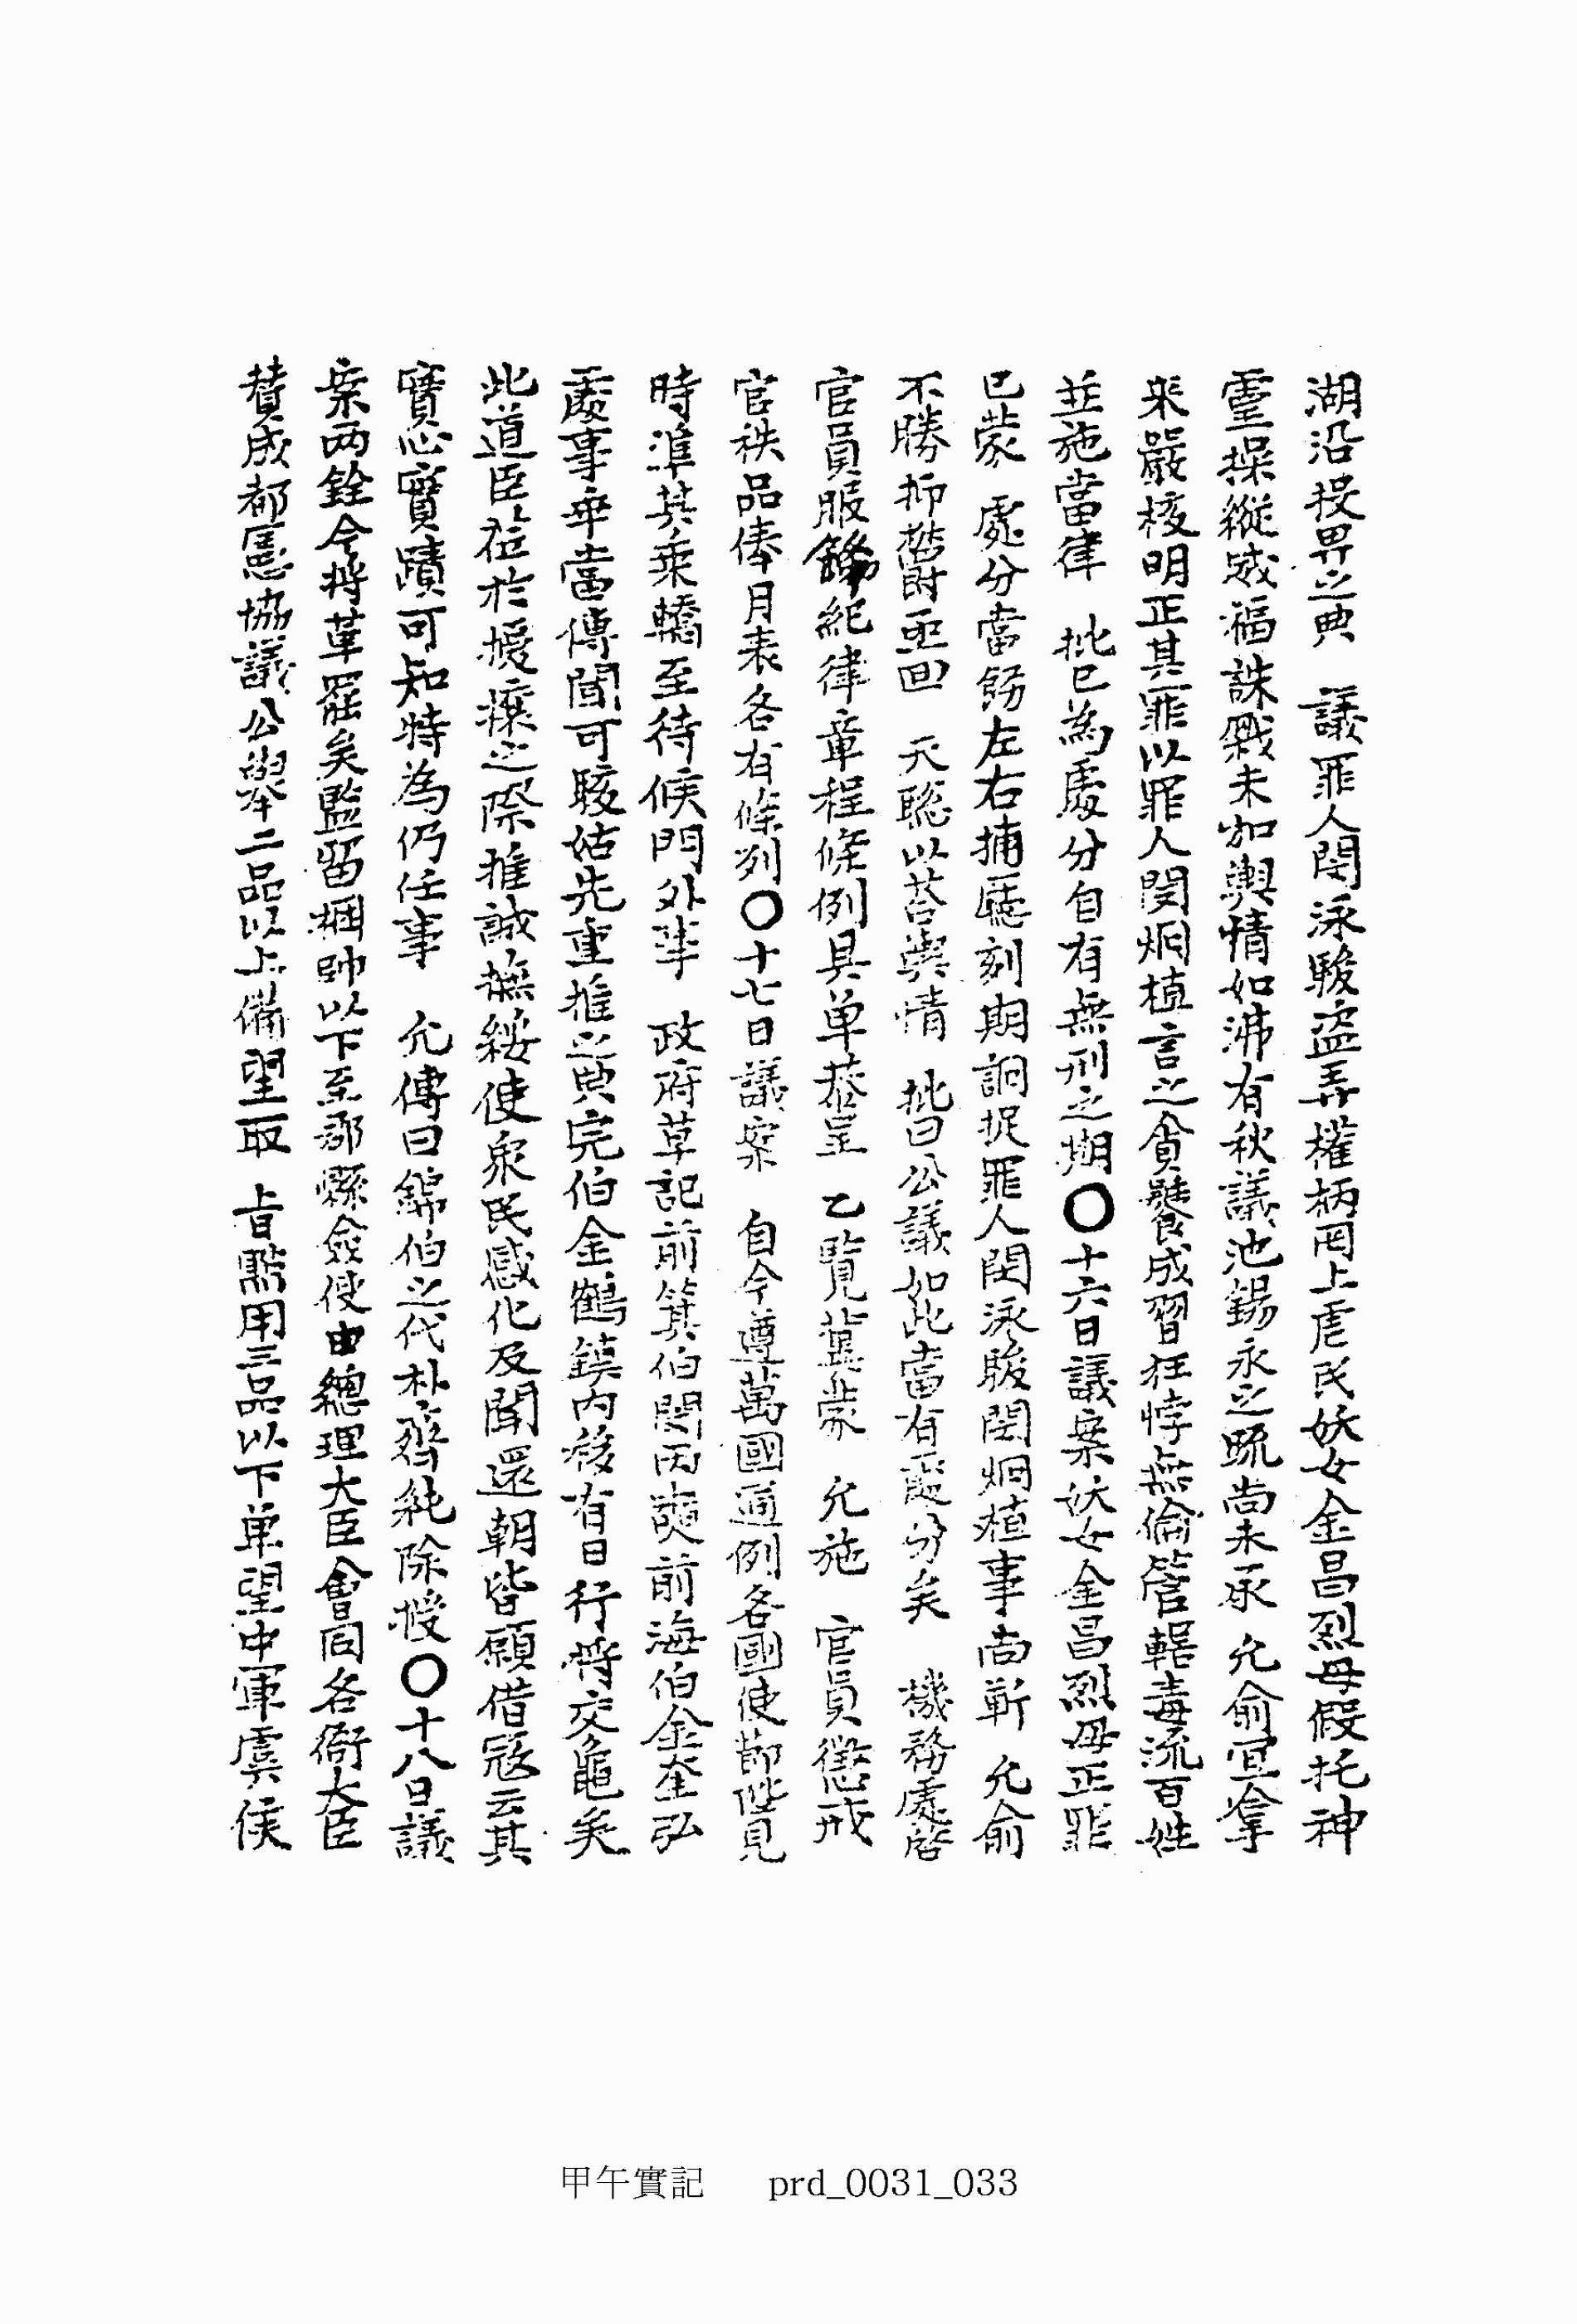 湖沿投畀之典 議罪人閔泳駿盗弄權柄罔上虐民妖女金昌烈母假托神
靈操縱威福誅戮未加輿情如沸有秋議池錫永之䟽尚未承 允俞宜拿
来嚴核明正其罪以罪人閔炯植言之貪饕成習狂悖無倫管轄毒流百姓
並施當律 批已為處分自有無刑之期〇十六日議案妖女金昌烈母正罪
已蒙 處分當飭左右捕廳刻期詗捉罪人閔泳駿閔炯植事尚靳 允俞
不勝抑欝亟回 天聡以荅輿情 批曰公議如此當有處分矣 機務處啓
官員服飾紀律章程條例具单恭呈 乙覧冀蒙 允施 官員懲戒
官秩品俸月表各有條列〇十七日議案 自今遵萬國通例各國使節陛見
時準其乗轎至待候門外事 政府草記前箕伯閔丙奭前海伯金奎弘
處事乖當傳聞可駭姑先重推之典完伯金鶴鎮内移有日行将交龜矣
此道臣莅於擾攘之際推誠撫綏使衆民感化及聞還朝皆願借寇云其
實心實蹟可知特為仍任事 允傳曰錦伯之代朴齊純除授〇十八日議
案两銓今将革罷矣監留梱帥以下至郡縣僉使由總理大臣會同各衙大臣
賛成都憲協議公舉二品以上備望取 旨㸃用三品以下单望中軍虞候
甲午實記 prd_0031_033